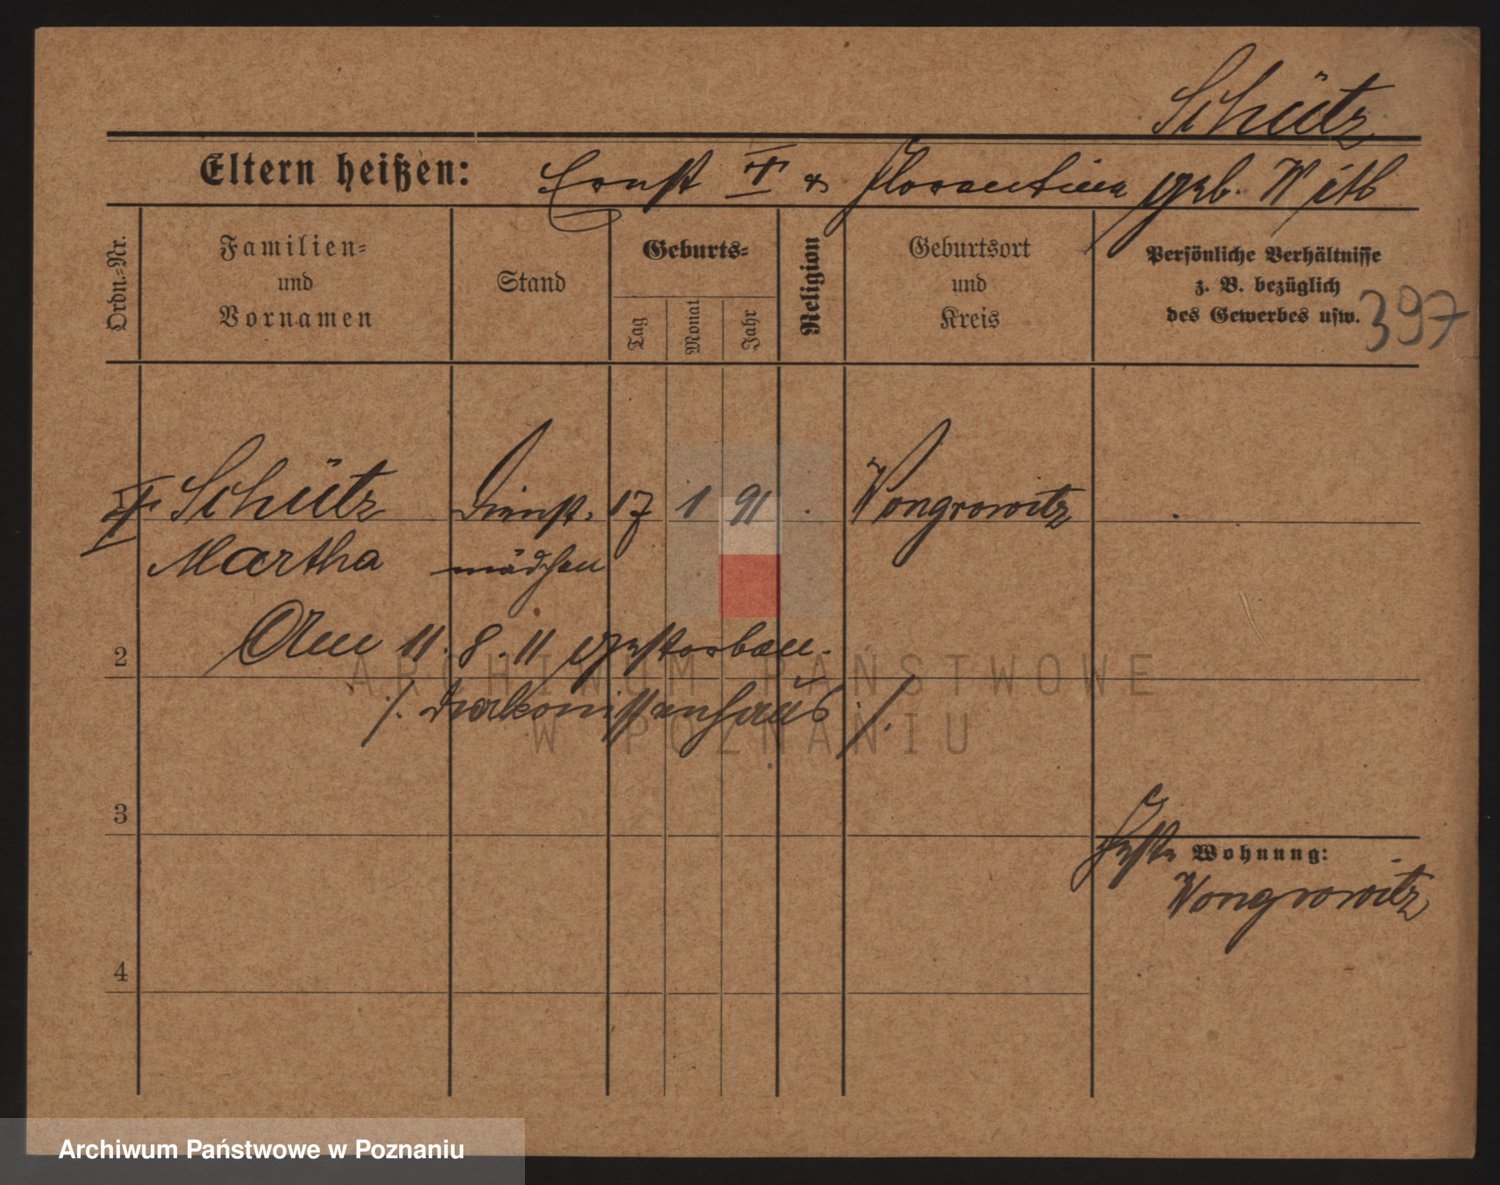 Schütz
Eltern heißen: Ernst † & Florentina geb. Witt
Ordn.-Nr.
Familien-
und
Vornamen
Stand
Geburts-
Tag
Monat
Jahr
Religion
Geburtsort
und
Kreis
Persönliche Verhältnisse
z. B. bezüglich
des Gewerbes usw.
397
1 † Schütz Dienst- 17 1 91 Wongrowitz
Martha mädchen
Am 11. 8. 11 gestorben.
2
ARCHIWUM PAŃSTWOWE
W POZNANIU
/. Diakonissenhaus /.
3
Feste Wohnung:
Wongrowitz
4
Archiwum Państwowe w Poznaniu